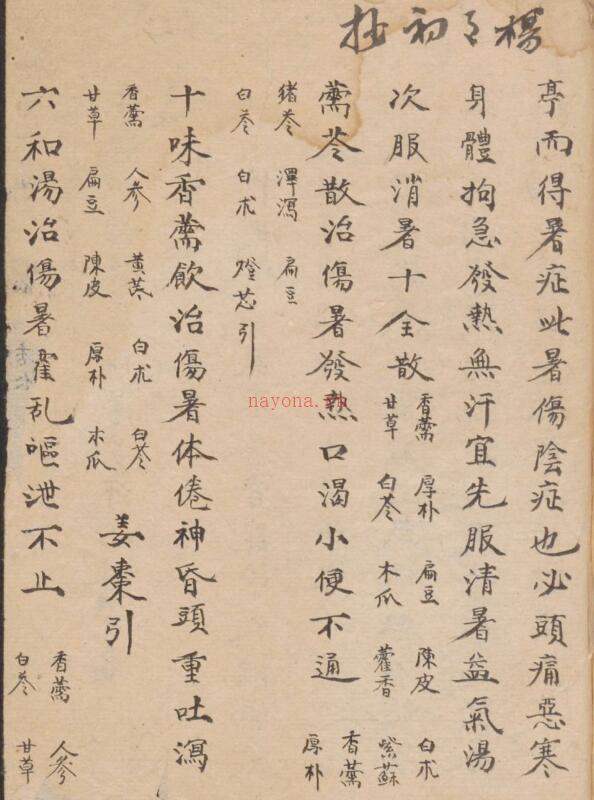 楊初
亭而得暑症此暑傷陰症也必頭痛惡寒
身體拘急發熱無汗宜先服清暑益氣湯
次服消暑十全散
香薷 厚朴 扁豆 陳皮 白朮
甘草 白苓 木瓜 藿香 紫蘇
薷苓散治傷暑發熱口渴小便不通
香薷
厚朴
猪苓 澤瀉 扁豆
白苓 白朮 燈芯引
十味香薷飲治傷暑体倦神昏頭重吐瀉
香薷 人参 黃芪 白朮 白苓
甘草 扁豆 陳皮 厚朴 木瓜
姜棗引
六和湯治傷暑霍乱嘔泄不止
香薷 人参
白苓 甘草
nayona.vn